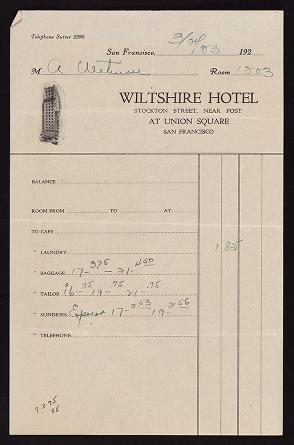 Telephone Sutter 2290
San Francisco, 3/24/23 192
M A Wetmore Room 1203
WILTSHIRE HOTEL
STOCKTON STREET, NEAR POST
AT UNION SQUARE
SAN FRANCISCO
BALANCE
ROOM FROM TO AT
TO CAFE
" LAUNDRY 1 85
" BAGGAGE 17- 375 - 21- 450
" TAILOR 16- 75 19- 75 21- 75
" SUNDRIES 17- 253 19- 256
" TELEPHONE